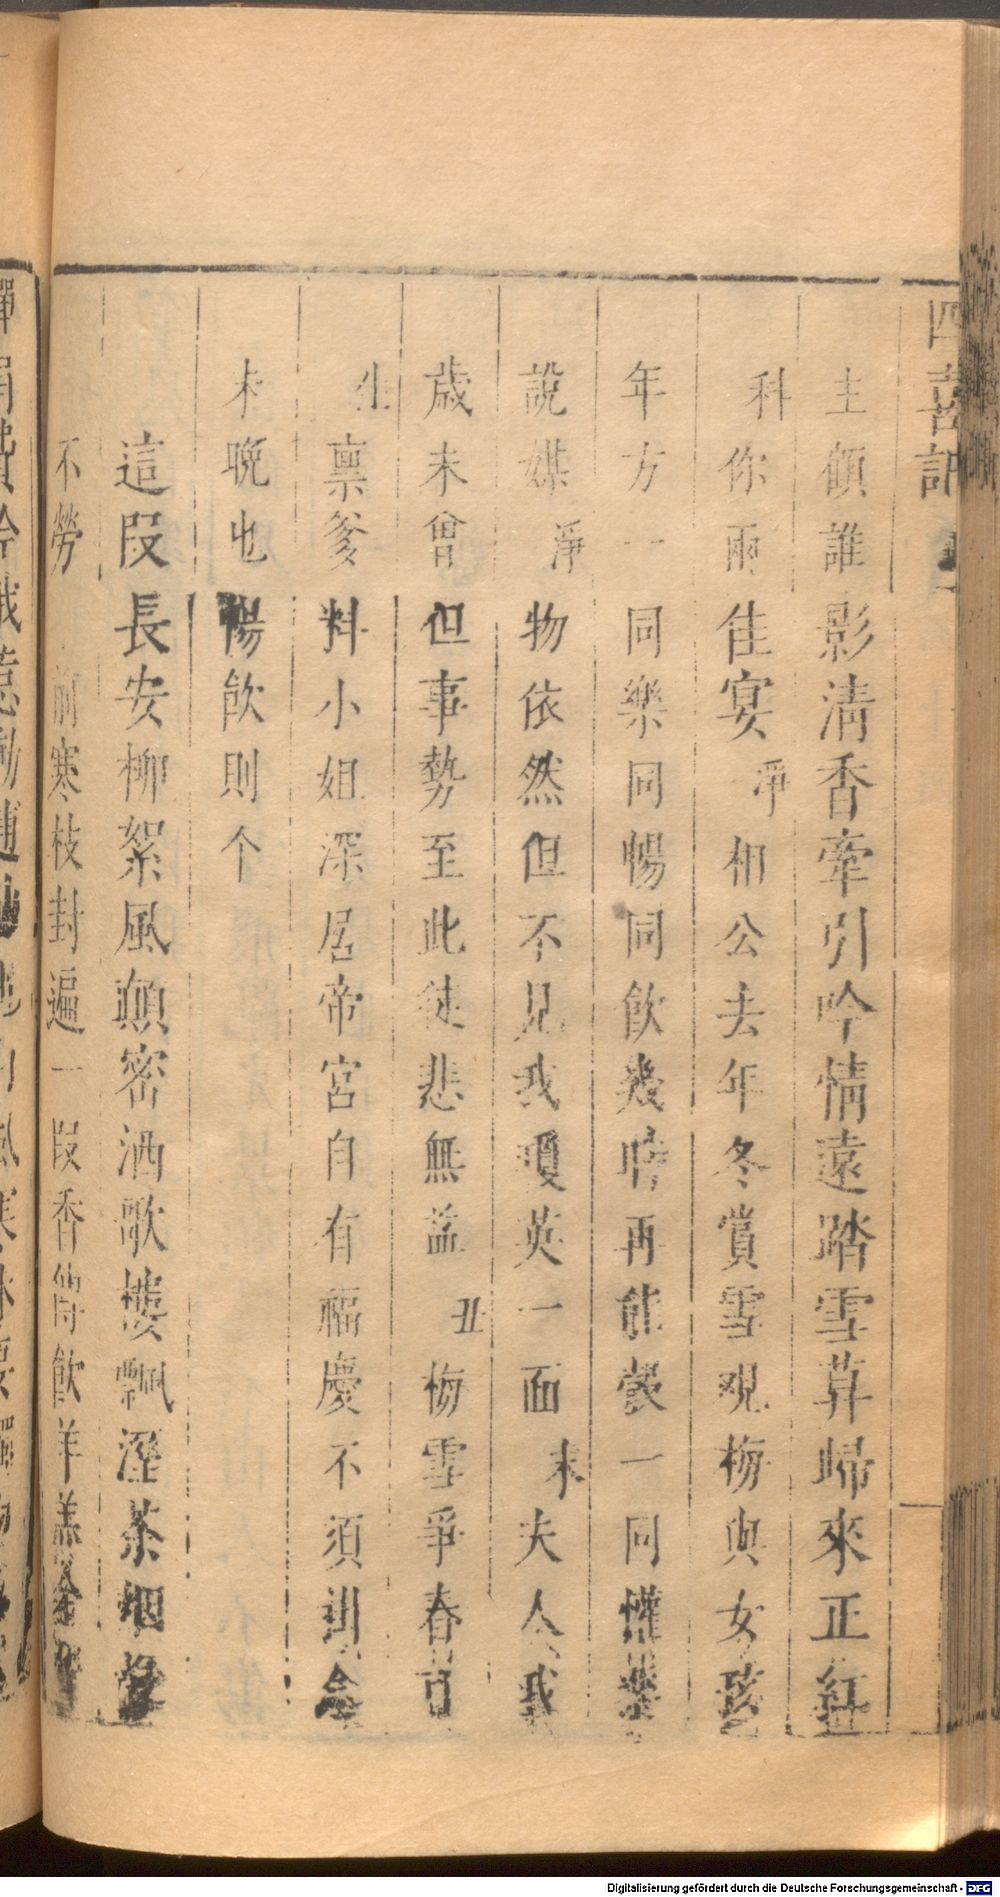 四喜記
主頋誰影清香牽引吟情遠踏雪尋歸來正紅
科你兩佳宴淨相公去年冬賞雪观梅與女孩
年方一同樂同暢同飲幾時再能彀一同懽樂
說媒淨物依然但不見我瓊英一面末夫人我
歳未曾但事勢至此徒悲無益丑梅雪爭春百
生禀爹料小姐深居帝宮自有福慶不須訓念
未晚也暢飲則个
這段長安柳絮風顛密洒歌樓飄溼茶烟
不勞前寒枝封遍一段香傳飲羊羔
Digitalisierung gefördert durch die Deutsche Forschungsgemeinschaft - DFG